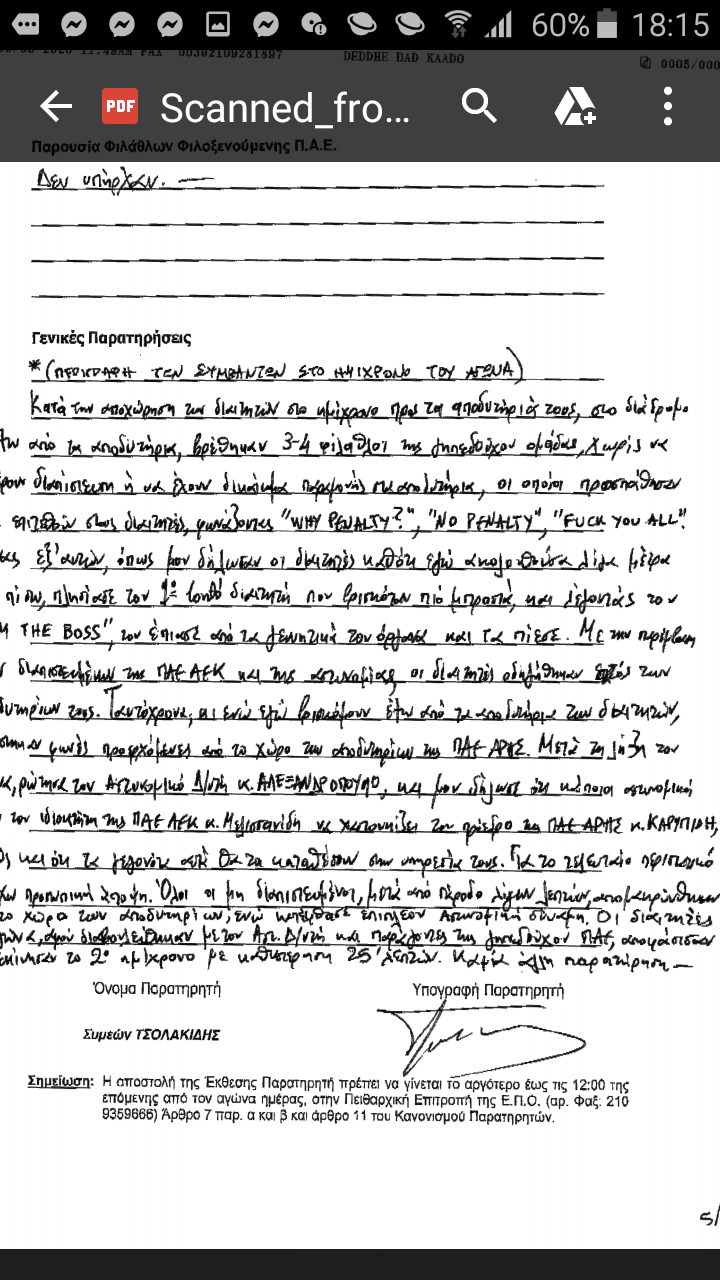 60% 18:15
11:49AM FAX 00302109281897 DEDDHE DAD KAADO 0005/000
PDF Scanned_fro...
Παρουσία Φιλάθλων Φιλοξενούμενης Π.Α.Ε.
Δεν υπήρχαν. —
Γενικές Παρατηρήσεις
*(ΠΕΡΙΓΡΑΦΗ ΤΩΝ ΣΥΜΒΑΝΤΩΝ ΣΤΟ ΗΜΙΧΡΟΝΟ ΤΟΥ ΑΓΩΝΑ)
Κατά την αποχώρηση των διαιτητών στο ημίχρονο προς τα αποδυτήριά τους, στο διάδρομο
από τα αποδυτήρια, βρέθηκαν 3-4 φίλαθλοι της γηπεδούχου ομάδας, χωρίς να
διαπίστευση ή να έχουν δικαίωμα παραμονής στα αποδυτήρια, οι οποίοι προσπάθησαν
επιτεθούν στους διαιτητές, φωνάζοντας "WHY PENALTY?", "NO PENALTY", "FUCK YOU ALL".
εξ' αυτών, όπως μου δήλωσαν οι διαιτητές καθότι εγώ ακολουθούσα λίγα μέτρα
πίσω, πλησίασε τον 1ο βοηθό διαιτητή που βρισκόταν πιο μπροστά, και λέγοντάς του
THE BOSS", τον έπιασε από τα γεννητικά του όργανα και τα πίεσε. Με την παρέμβαση
διαπιστευμένων της ΠΑΕ ΑΕΚ και της αστυνομίας, οι διαιτητές οδηγήθηκαν εντός των
τους. Ταυτόχρονα, κι ενώ εγώ βρισκόμουν έξω από τα αποδυτήρια των διαιτητών,
φωνές προερχόμενες από το χώρο των αποδυτηρίων της ΠΑΕ ΑΡΗΣ. Μετά τη λήξη του
ρώτησα τον Αστυνομικό Δ/ντή κ. ΑΛΕΞΑΝΔΡΟΠΟΥΛΟ, και μου δήλωσε ότι κάποιοι αστυνομικοί
τον ιδιοκτήτη της ΠΑΕ ΑΕΚ κ. Μελισσανίδη να χαστουκίζει τον πρόεδρο της ΠΑΕ ΑΡΗΣ κ. ΚΑΡΥΠΙΔΗ,
και ότι τα γεγονότα αυτά θα τα καταθέσουν στην υπηρεσία τους. Για το τελευταίο περιστατικό
προσωπική άποψη. Όλοι οι μη διαπιστευμένοι, μετά από πάροδο λίγων λεπτών, απομακρύνθηκαν
το χώρο των αποδυτηρίων, ενώ κατέφθασε επιπλέον Αστυνομική δύναμη. Οι διαιτητές
αφού διαβουλεύθηκαν με τον Αστ. Δ/ντή και παράγοντες της γηπεδούχου ΠΑΕ, αποφάσισαν
το 2ο ημίχρονο με καθυστέρηση 25 λεπτών. Καμία άλλη παρατήρηση —
Όνομα Παρατηρητή Υπογραφή Παρατηρητή
Συμεών ΤΣΟΛΑΚΙΔΗΣ
Σημείωση: Η αποστολή της Έκθεσης Παρατηρητή πρέπει να γίνεται το αργότερο έως τις 12:00 της
επόμενης από τον αγώνα ημέρας, στην Πειθαρχική Επιτροπή της Ε.Π.Ο. (αρ. Φαξ: 210
9359666) Άρθρο 7 παρ. α και β και άρθρο 11 του Κανονισμού Παρατηρητών.
5/